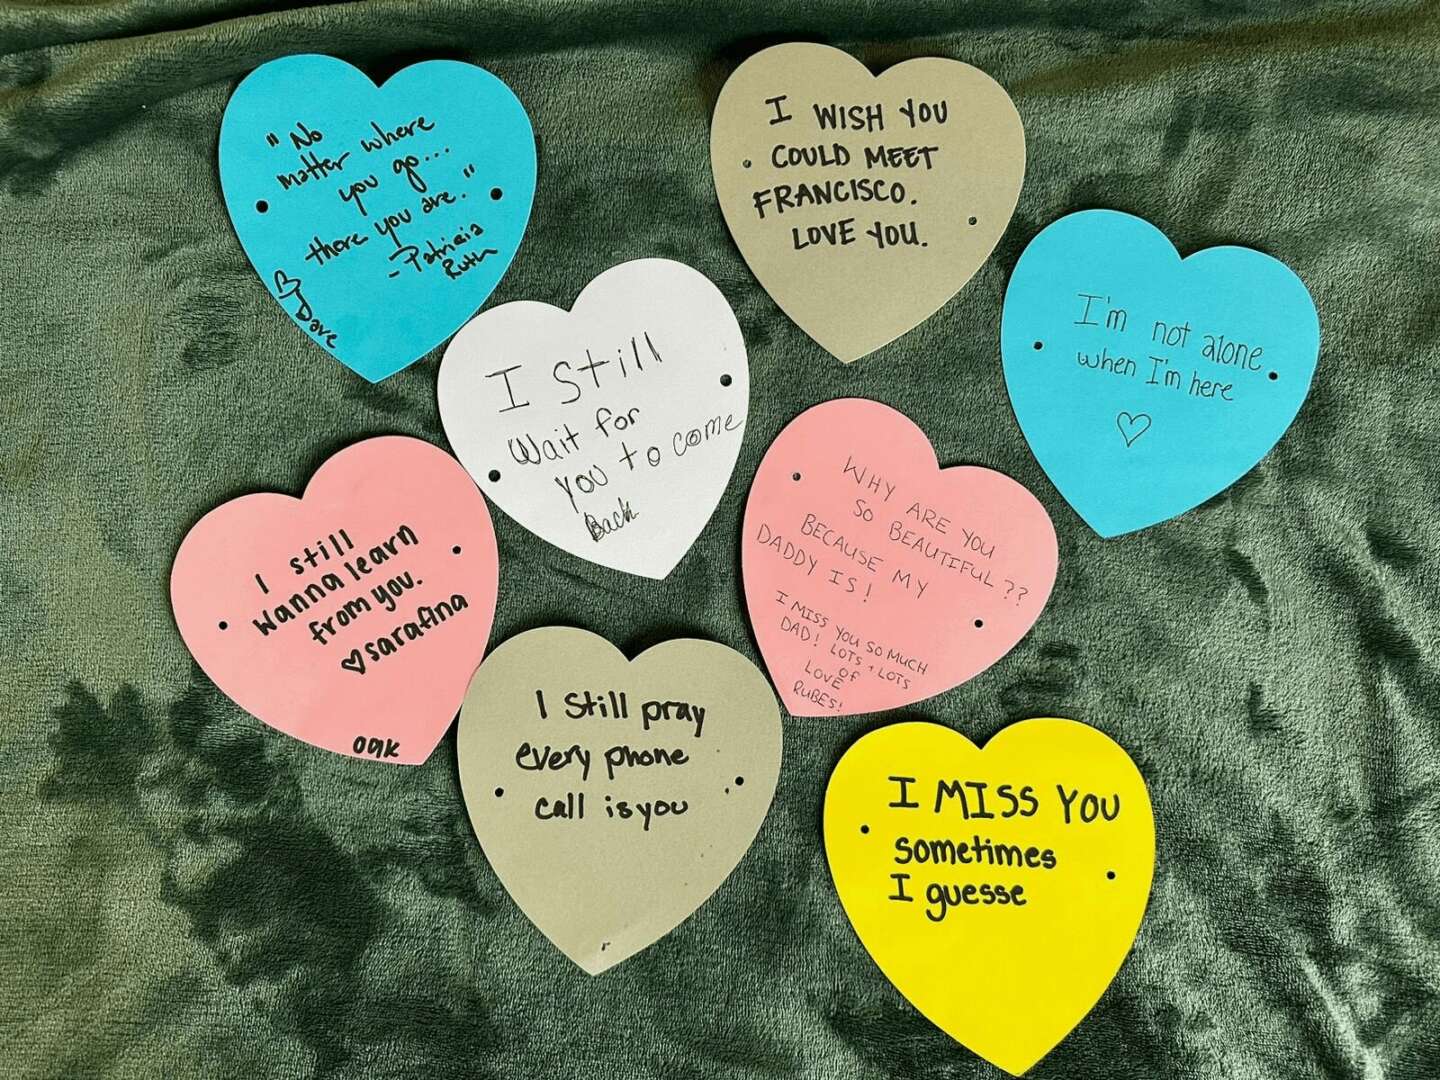 "No
matter where
you go...
there you are."
- Patricia
Ruth
Dave
I WISH YOU
COULD MEET
FRANCISCO.
LOVE YOU.
I'm not alone
when I'm here
I Still
Wait for
you to come
Back
I still
wanna learn
from you.
sarafina
WHY ARE YOU
SO BEAUTIFUL??
BECAUSE MY
DADDY IS!
I MISS YOU SO MUCH
DAD! LOTS + LOTS
OF
LOVE
RUBES!
I still pray
every phone
call is you
I MISS YOU
sometimes
I guesse